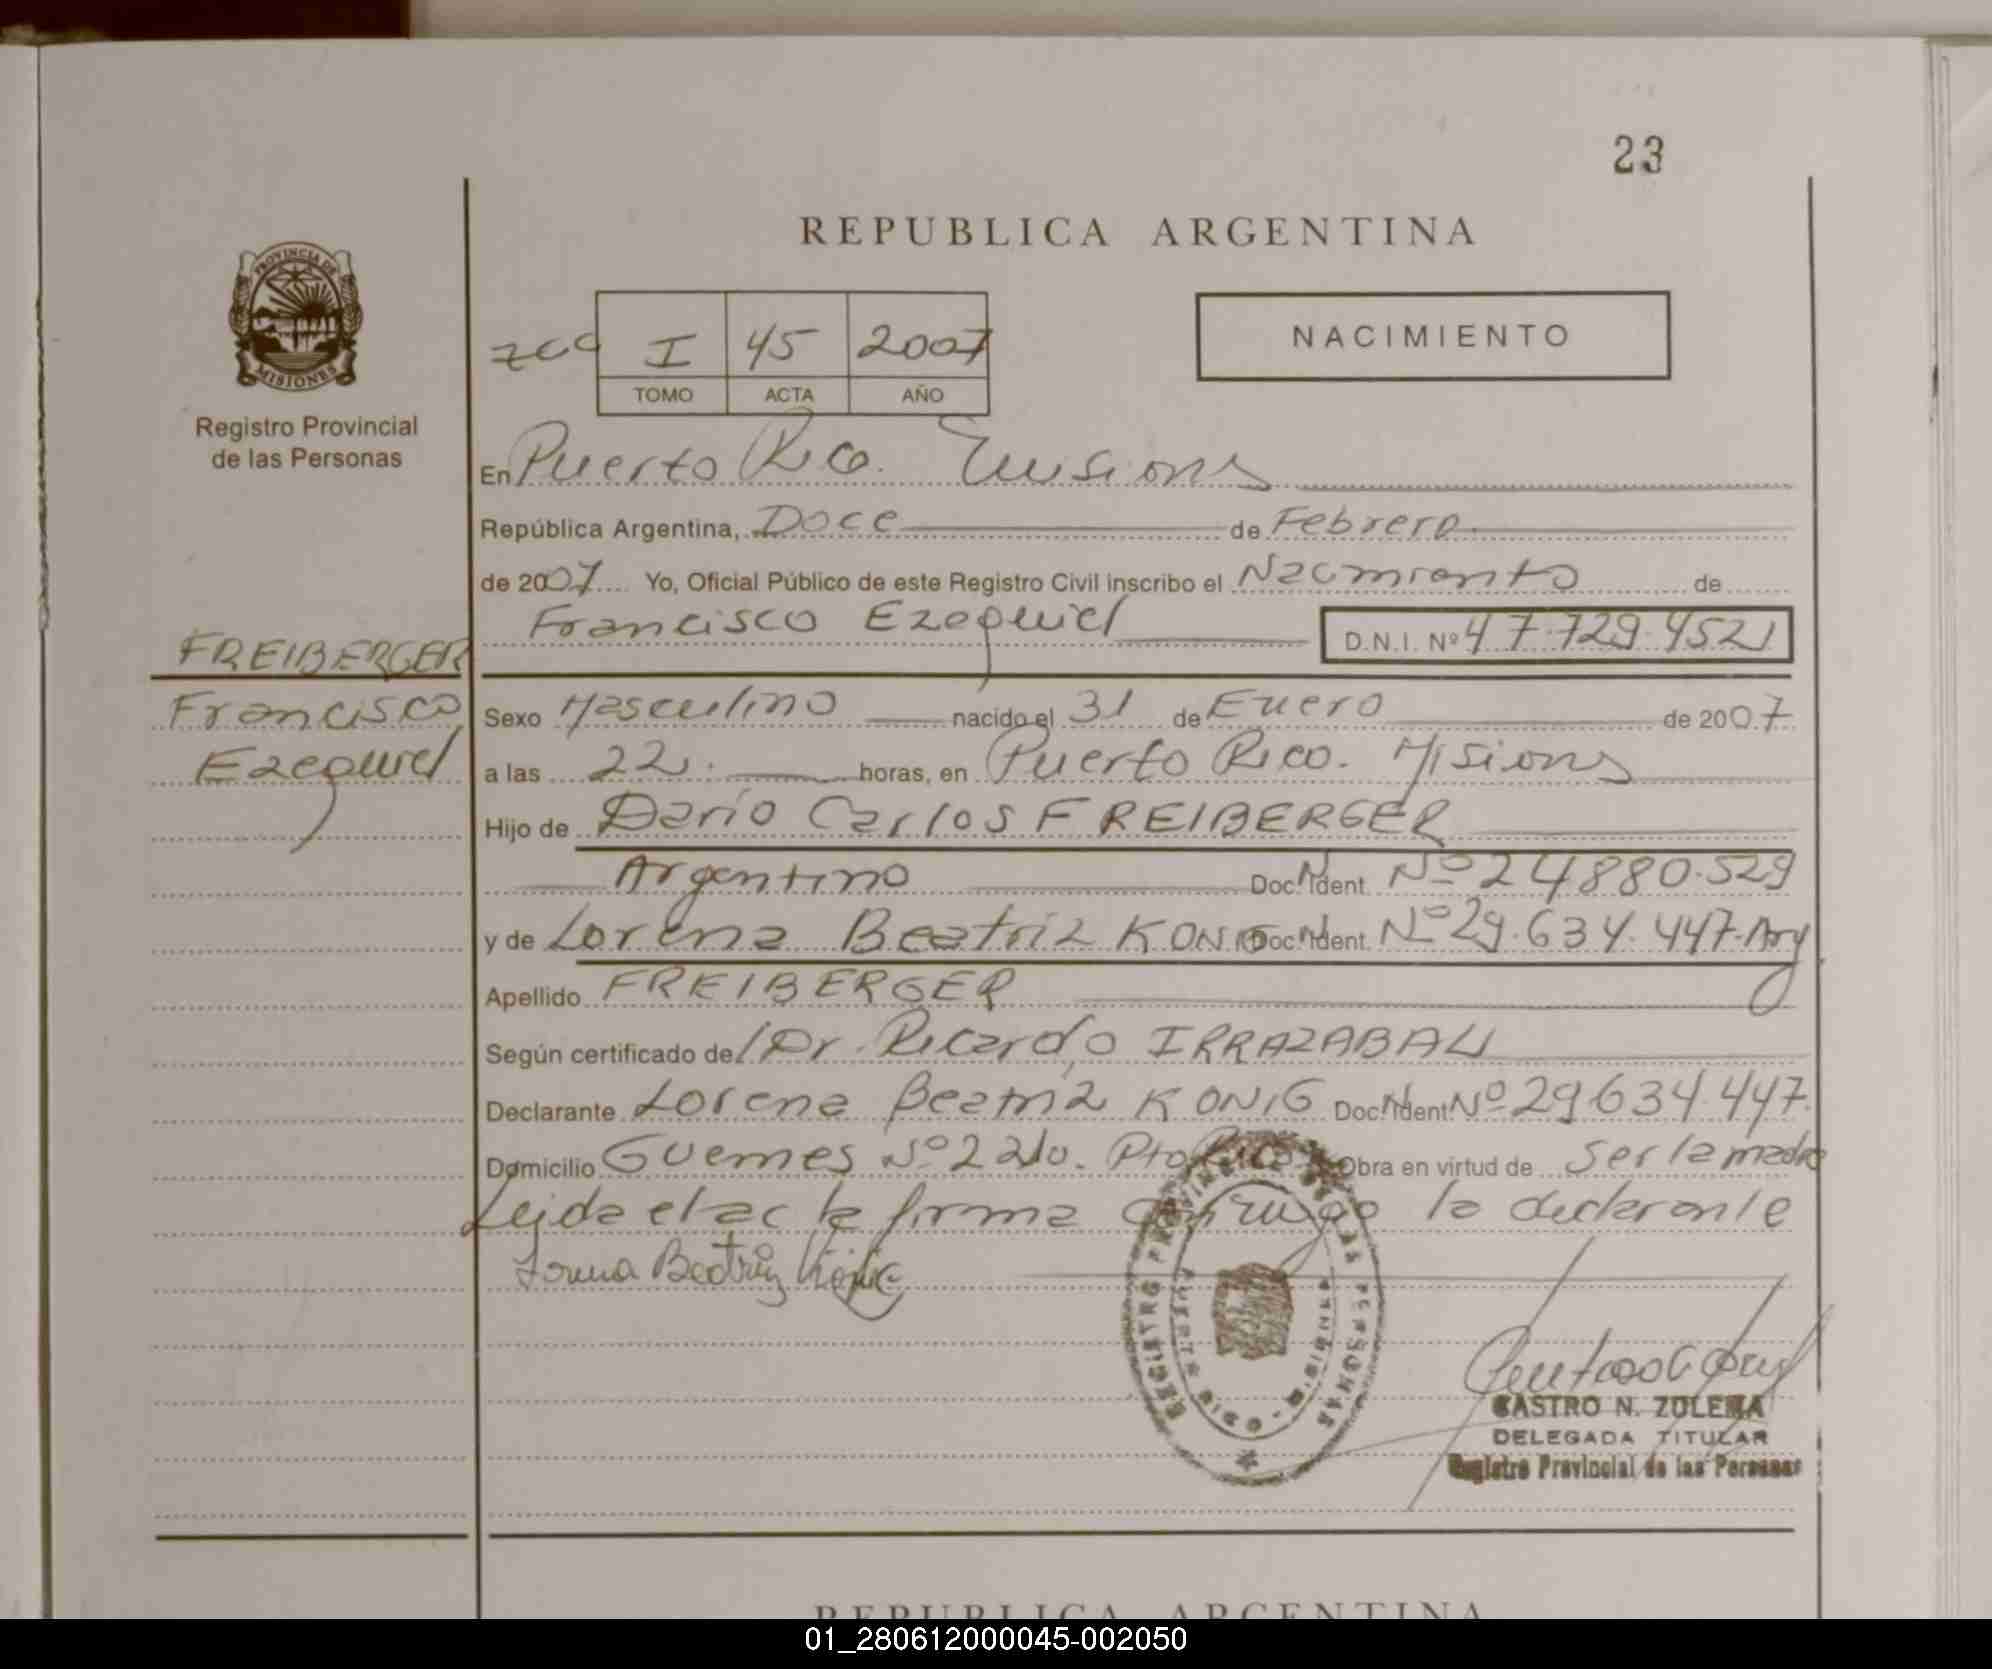 23
REPUBLICA ARGENTINA
PROVINCIA DE
MISIONES
Registro Provincial
de las Personas
I 45 2007
TOMO ACTA AÑO
NACIMIENTO
En Puerto Rico. Misiones
República Argentina, Doce de Febrero
de 2007 Yo, Oficial Público de este Registro Civil inscribo el Nacimiento de
Francisco Ezequiel D.N.I. Nº 47.729.452
FREIBERGER
Francisco
Ezequiel
Sexo Masculino nacido el 31 de Enero de 2007
a las 22. horas, en Puerto Rico. Misiones
Hijo de Dario Carlos FREIBERGER
Argentino Doc. N. Ident. Nº 24880.529
y de Lorena Beatriz KONIG Doc. N. Ident. Nº 29.634.447. Arg
Apellido FREIBERGER
Según certificado del Dr. Ricardo IRRAZABAL
Declarante Lorena Beatriz KONIG Doc. N. Ident. Nº 29634.447.
Domicilio Guemes Nº Pto Rico Obra en virtud de ser la madre
Leida el acta firma conmigo la declarante
Lorena Beatriz König
REGISTRO PROVINCIAL DE LAS PERSONAS
PUERTO RICO - MISIONES
CASTRO N. ZULEMA
DELEGADA TITULAR
Registro Provincial de las Personas
REPUBLICA ARGENTINA
01_280612000045-002050